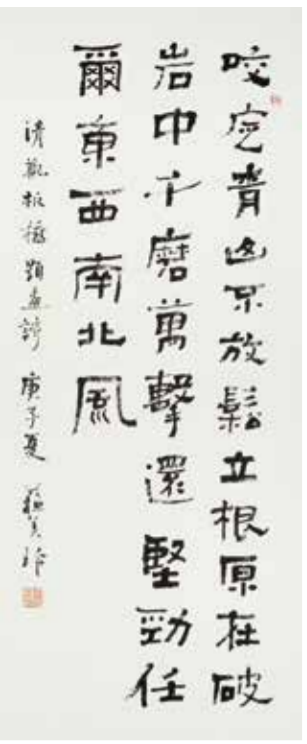 咬定青山不放鬆立根原在破
岩中千磨萬擊還堅勁任
爾東西南北風
清鄭板橋題畫詩 庚子夏